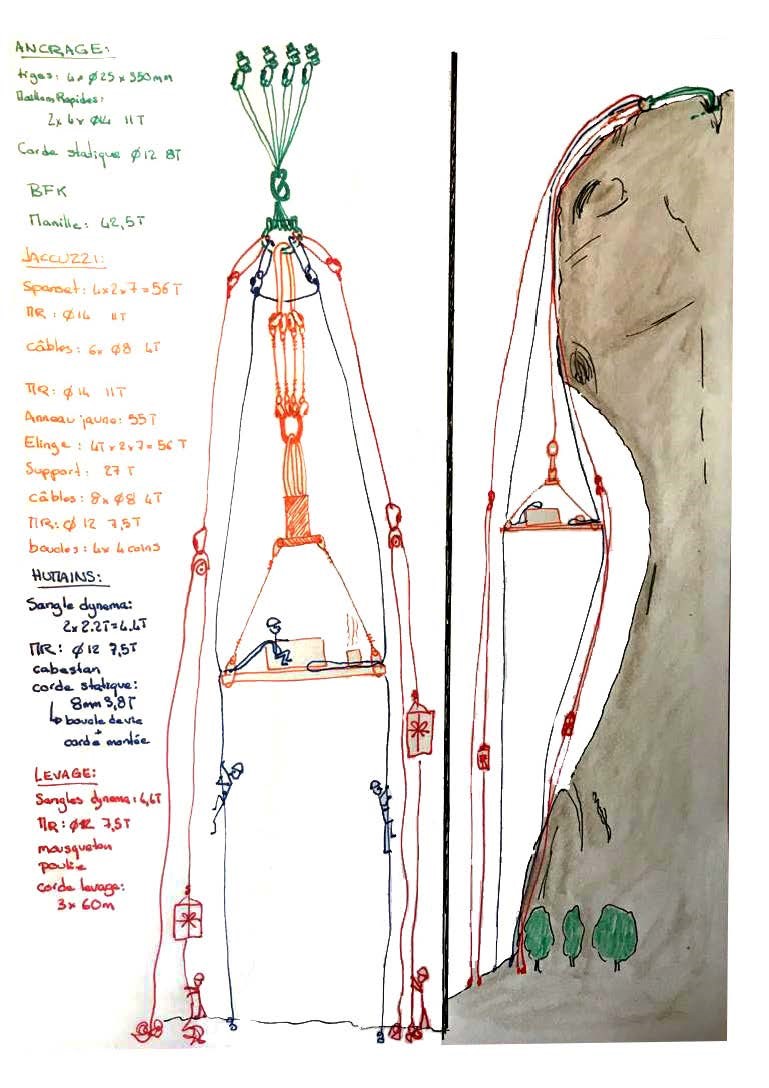 ANCRAGE:
tiges: 4x Ø25 x 350mm
Maillons Rapides:
2x 4x Ø14 11T
Corde statique Ø12 8T
BFK
Manille: 42,5T
JACCUZZI:
Spanset: 4x2x7=56T
MR: Ø14 11T
câbles: 6x Ø8 4T
MR: Ø14 11T
Anneau jaune: 55T
Elingue: 4Tx2x7=56T
Support: 27T
câbles: 8x Ø8 4T
MR: Ø12 7,5T
boucles: 4x 4 coins
HUMAINS:
Sangle dynema:
2x2.2T=4.4T
MR: Ø12 7,5T
cabestan
corde statique:
8mm 3,8T
↳ boucle de vie
+
corde montée
LEVAGE:
Sangles dynema: 4,4T
MR: Ø12 7,5T
mousqueton
poulie
corde levage:
3x 60m